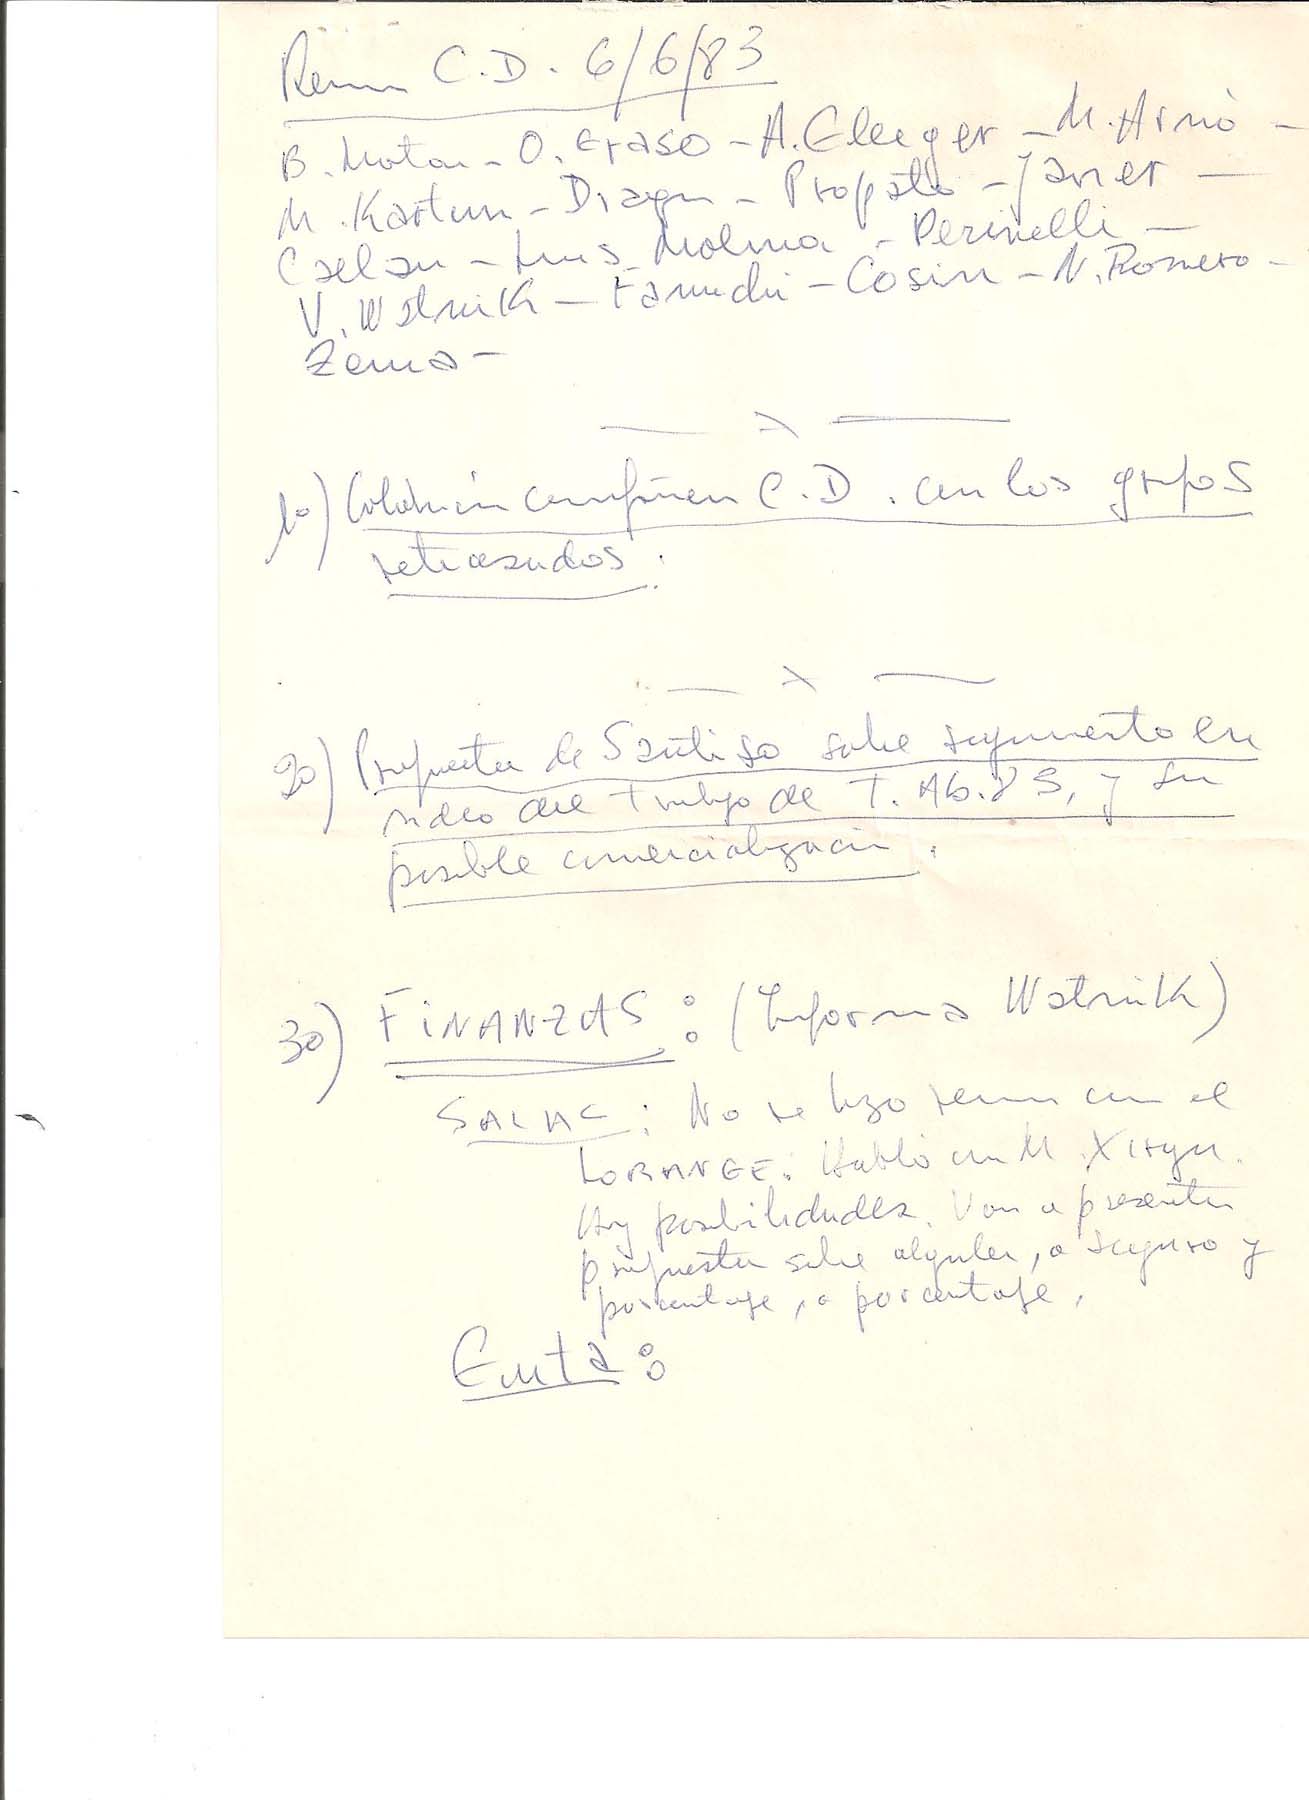 Reun C.D. 6/6/83
B. Mator - O. Eraso - A. Elleger - M. Arnó -
M. Kartun - Dragun - Propato - Javier -
Caelan - Luis Molina - Perinelli -
V. Watnik - Fanuchi - Cosin - N. Romero -
Zema -
1o) C.D. con los grupos
retrasados.
2o) Propuesta de Santiso sobre seguimiento en
video del Trabajo de T. Ab. 83, y su
posible comercialización.
3o) FINANZAS: (Informa Watnik)
SALAS: No se hizo reun con el
LORANGE. Habló con M. Xirgu.
Hay posibilidades. Van a presentar
propuesta sobre alquiler, a seguro y
porcentaje, o porcentaje.